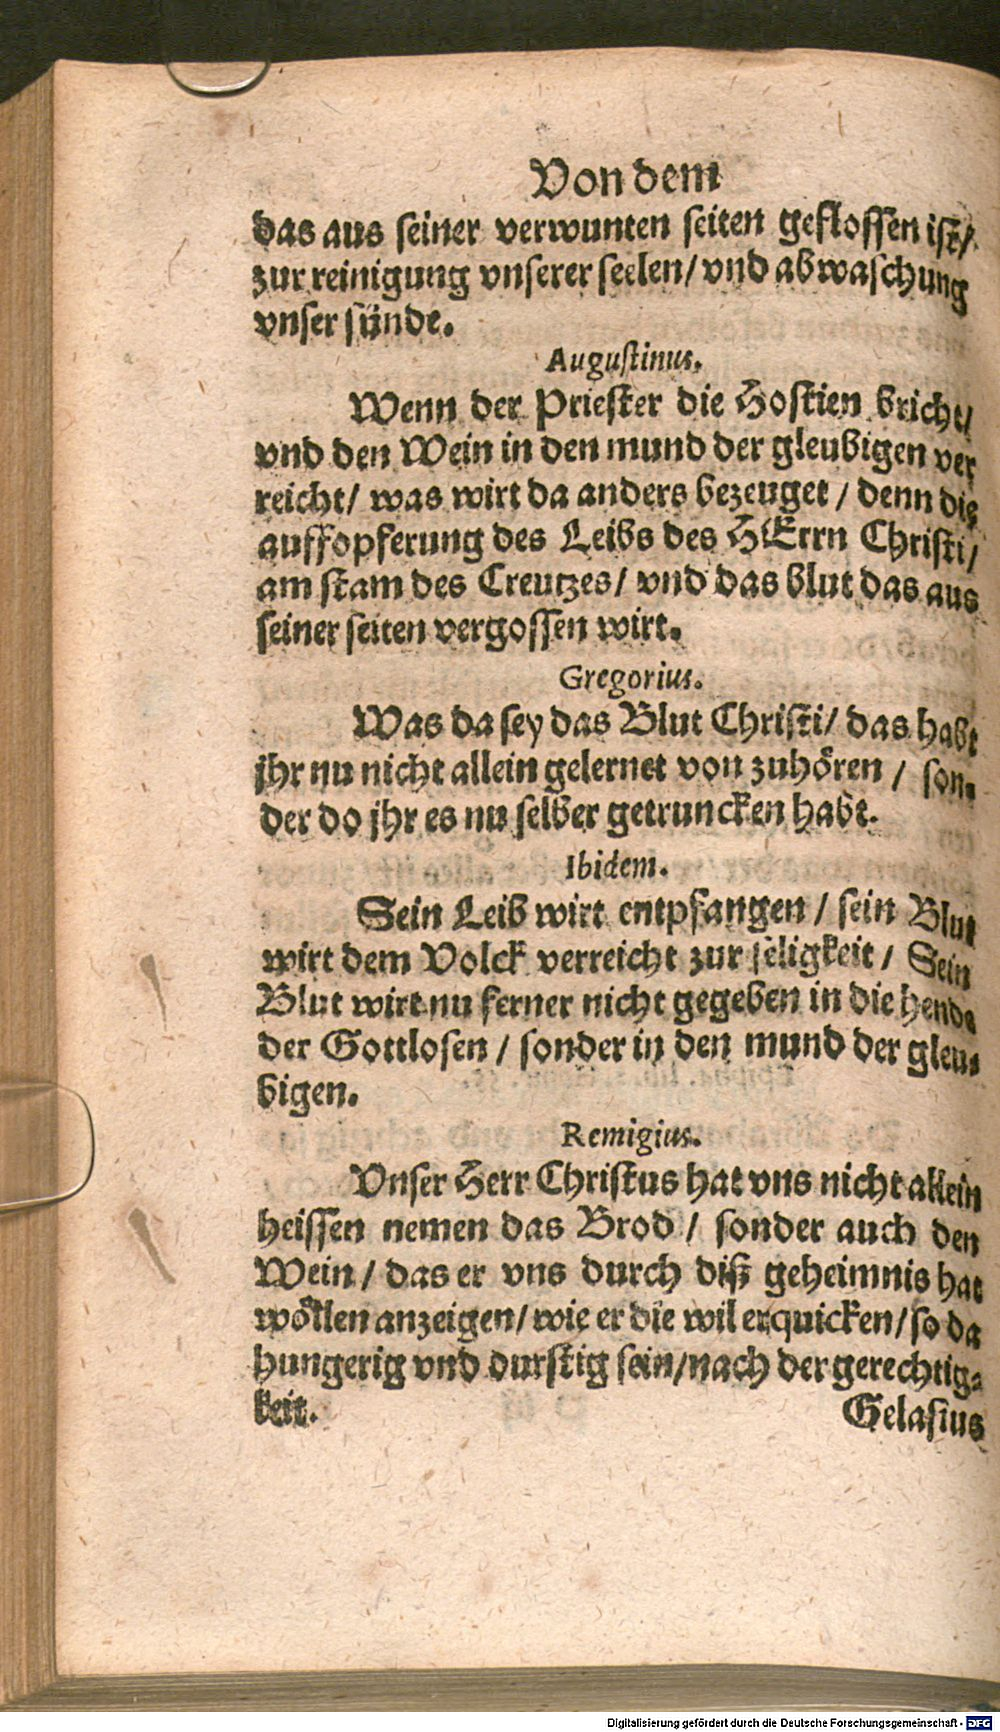 Von dem
das aus seiner verwunten seiten geflossen ist/
zur reinigung vnserer seelen/ vnd abwaschung
vnser sünde.
Augustinus.
Wenn der Priester die Hostien bricht/
vnd den Wein in den mund der gleubigen ver
reicht/ was wirt da anders bezeuget / denn die
auffopferung des Leibs des HErrn Christi/
am stam des Creutzes/ vnd das blut das aus
seiner seiten vergossen wirt.
Gregorius.
Was da sey das Blut Christi/ das habt
jhr nu nicht allein gelernet von zuhören / son-
der do jhr es nu selber getruncken habt.
Ibidem.
Sein Leib wirt entpfangen / sein Blut
wirt dem Volck verreicht zur seligkeit / Sein
Blut wirt nu ferner nicht gegeben in die hende
der Gottlosen / sonder in den mund der gleu-
bigen.
Remigius.
Vnser Herr Christus hat vns nicht allein
heissen nemen das Brod / sonder auch den
Wein / das er vns durch diß geheimnis hat
wöllen anzeigen/ wie er die wil erquicken/ so da
hungerig vnd durstig sein/ nach der gerechtig-
keit. Gelasius
Digitalisierung gefördert durch die Deutsche Forschungsgemeinschaft - DFG